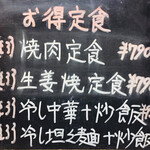 お得定食
焼肉定食 ¥790
生姜焼定食 ¥79
冷し中華+炒飯
冷し担々麺+炒飯